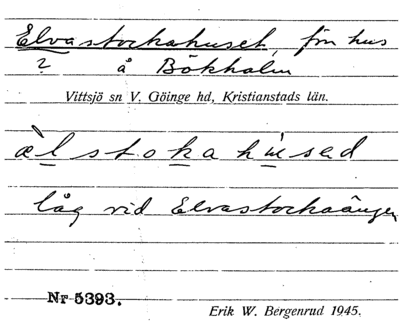 Elvastockahuset, fön hus
? å Bökholm
Vittsjö sn V. Göinge hd, Kristianstads län.
ælstokahused
låg vid Elvastockaängen
Nr 5393.
Erik W. Bergenrud 1945.